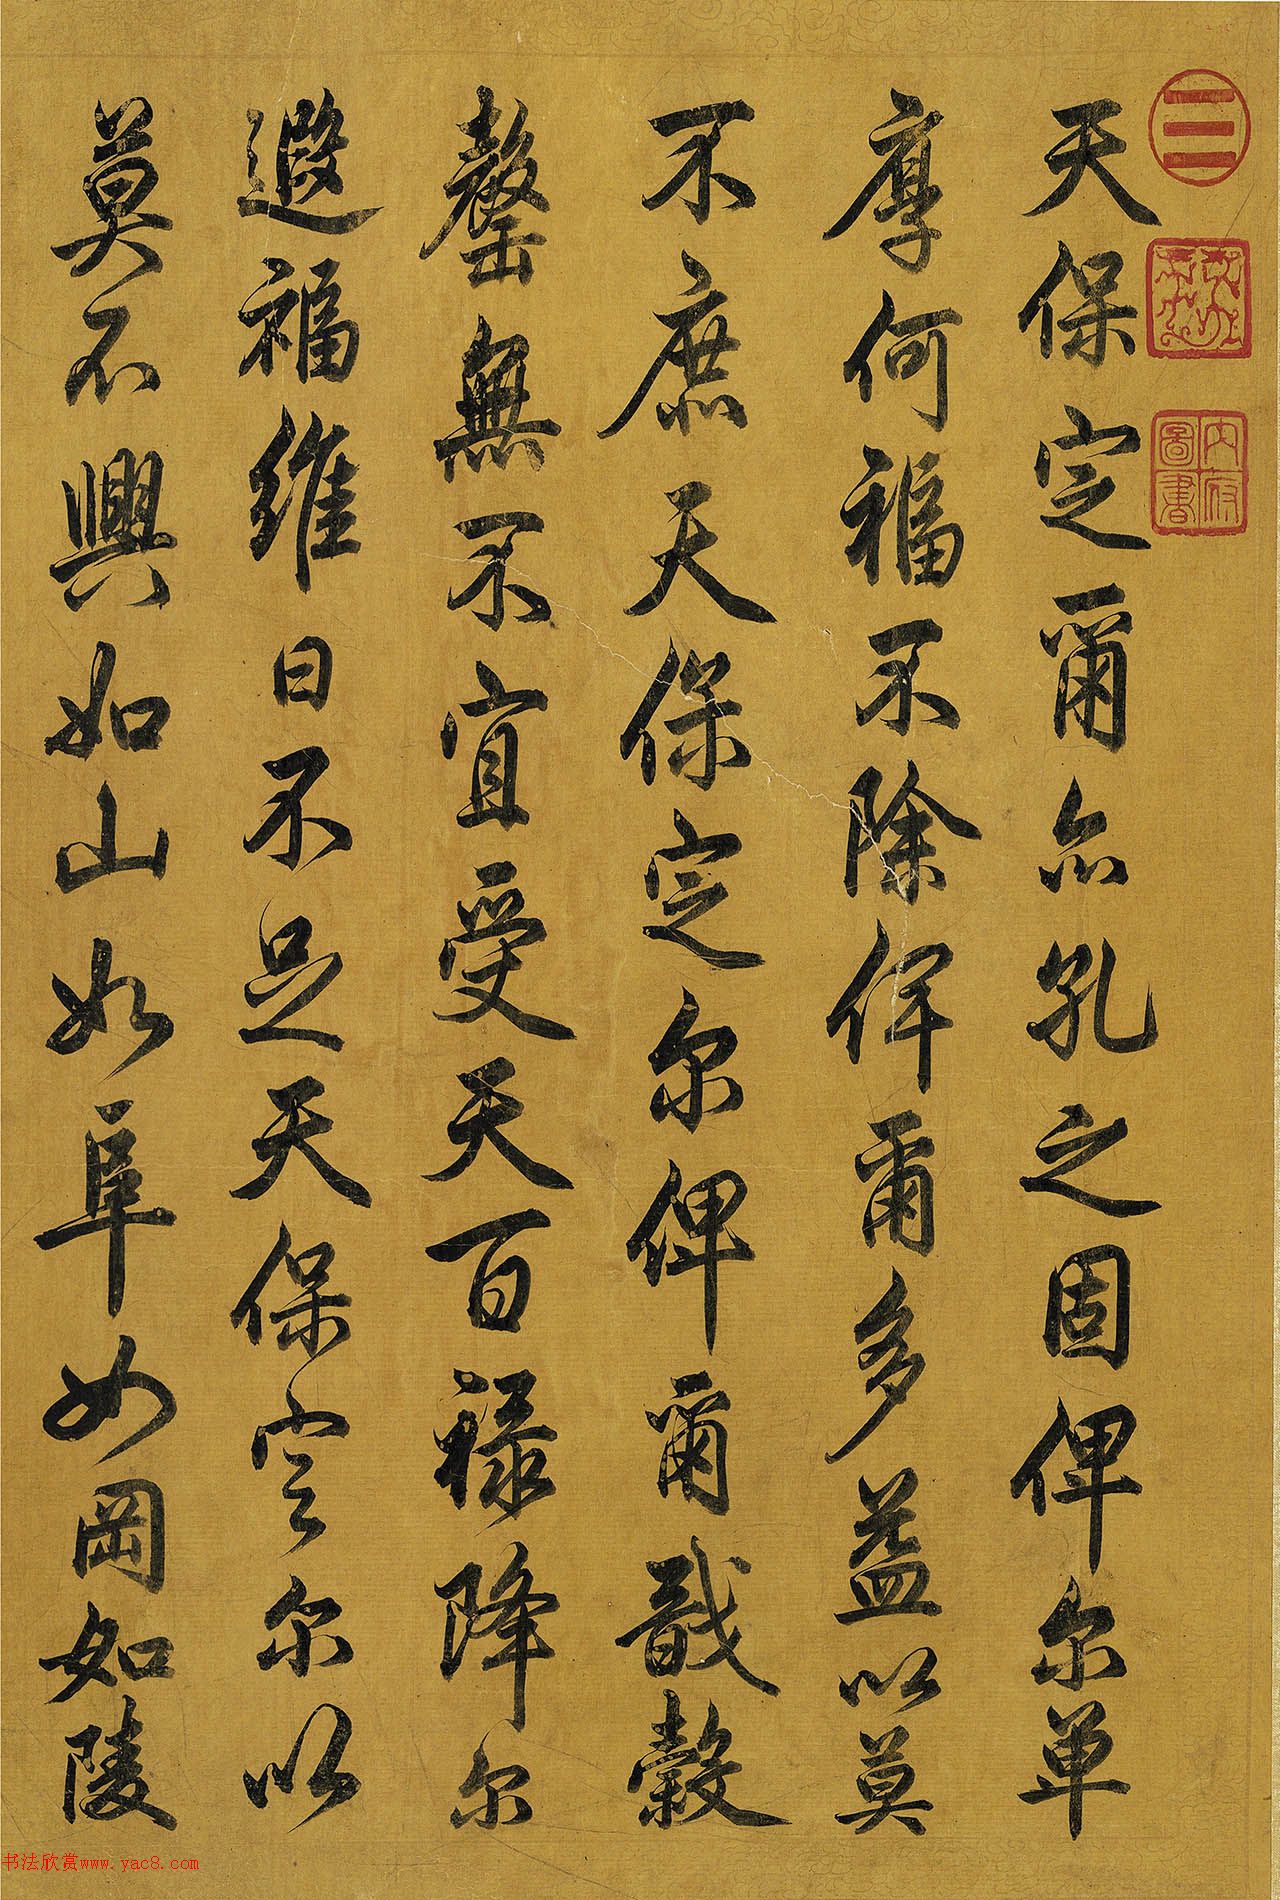 天保定爾亦孔之固俾尔單
厚何福不除俾爾多益以莫
不庶天保定尔俾爾戩穀
罄無不宜受天百祿降尔
遐福維日不足天保定尔以
莫不興如山如阜如岡如陵
三
內府圖書
书法欣赏www.yac8.com